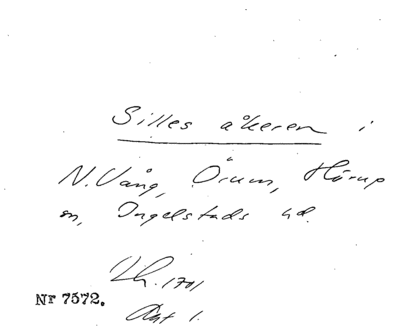 Silles åkeren i
N. Vång, Örum, Hörup
sn, Ingelstads hd.
Lh. 1701
Nr 7572.
Akt 1.